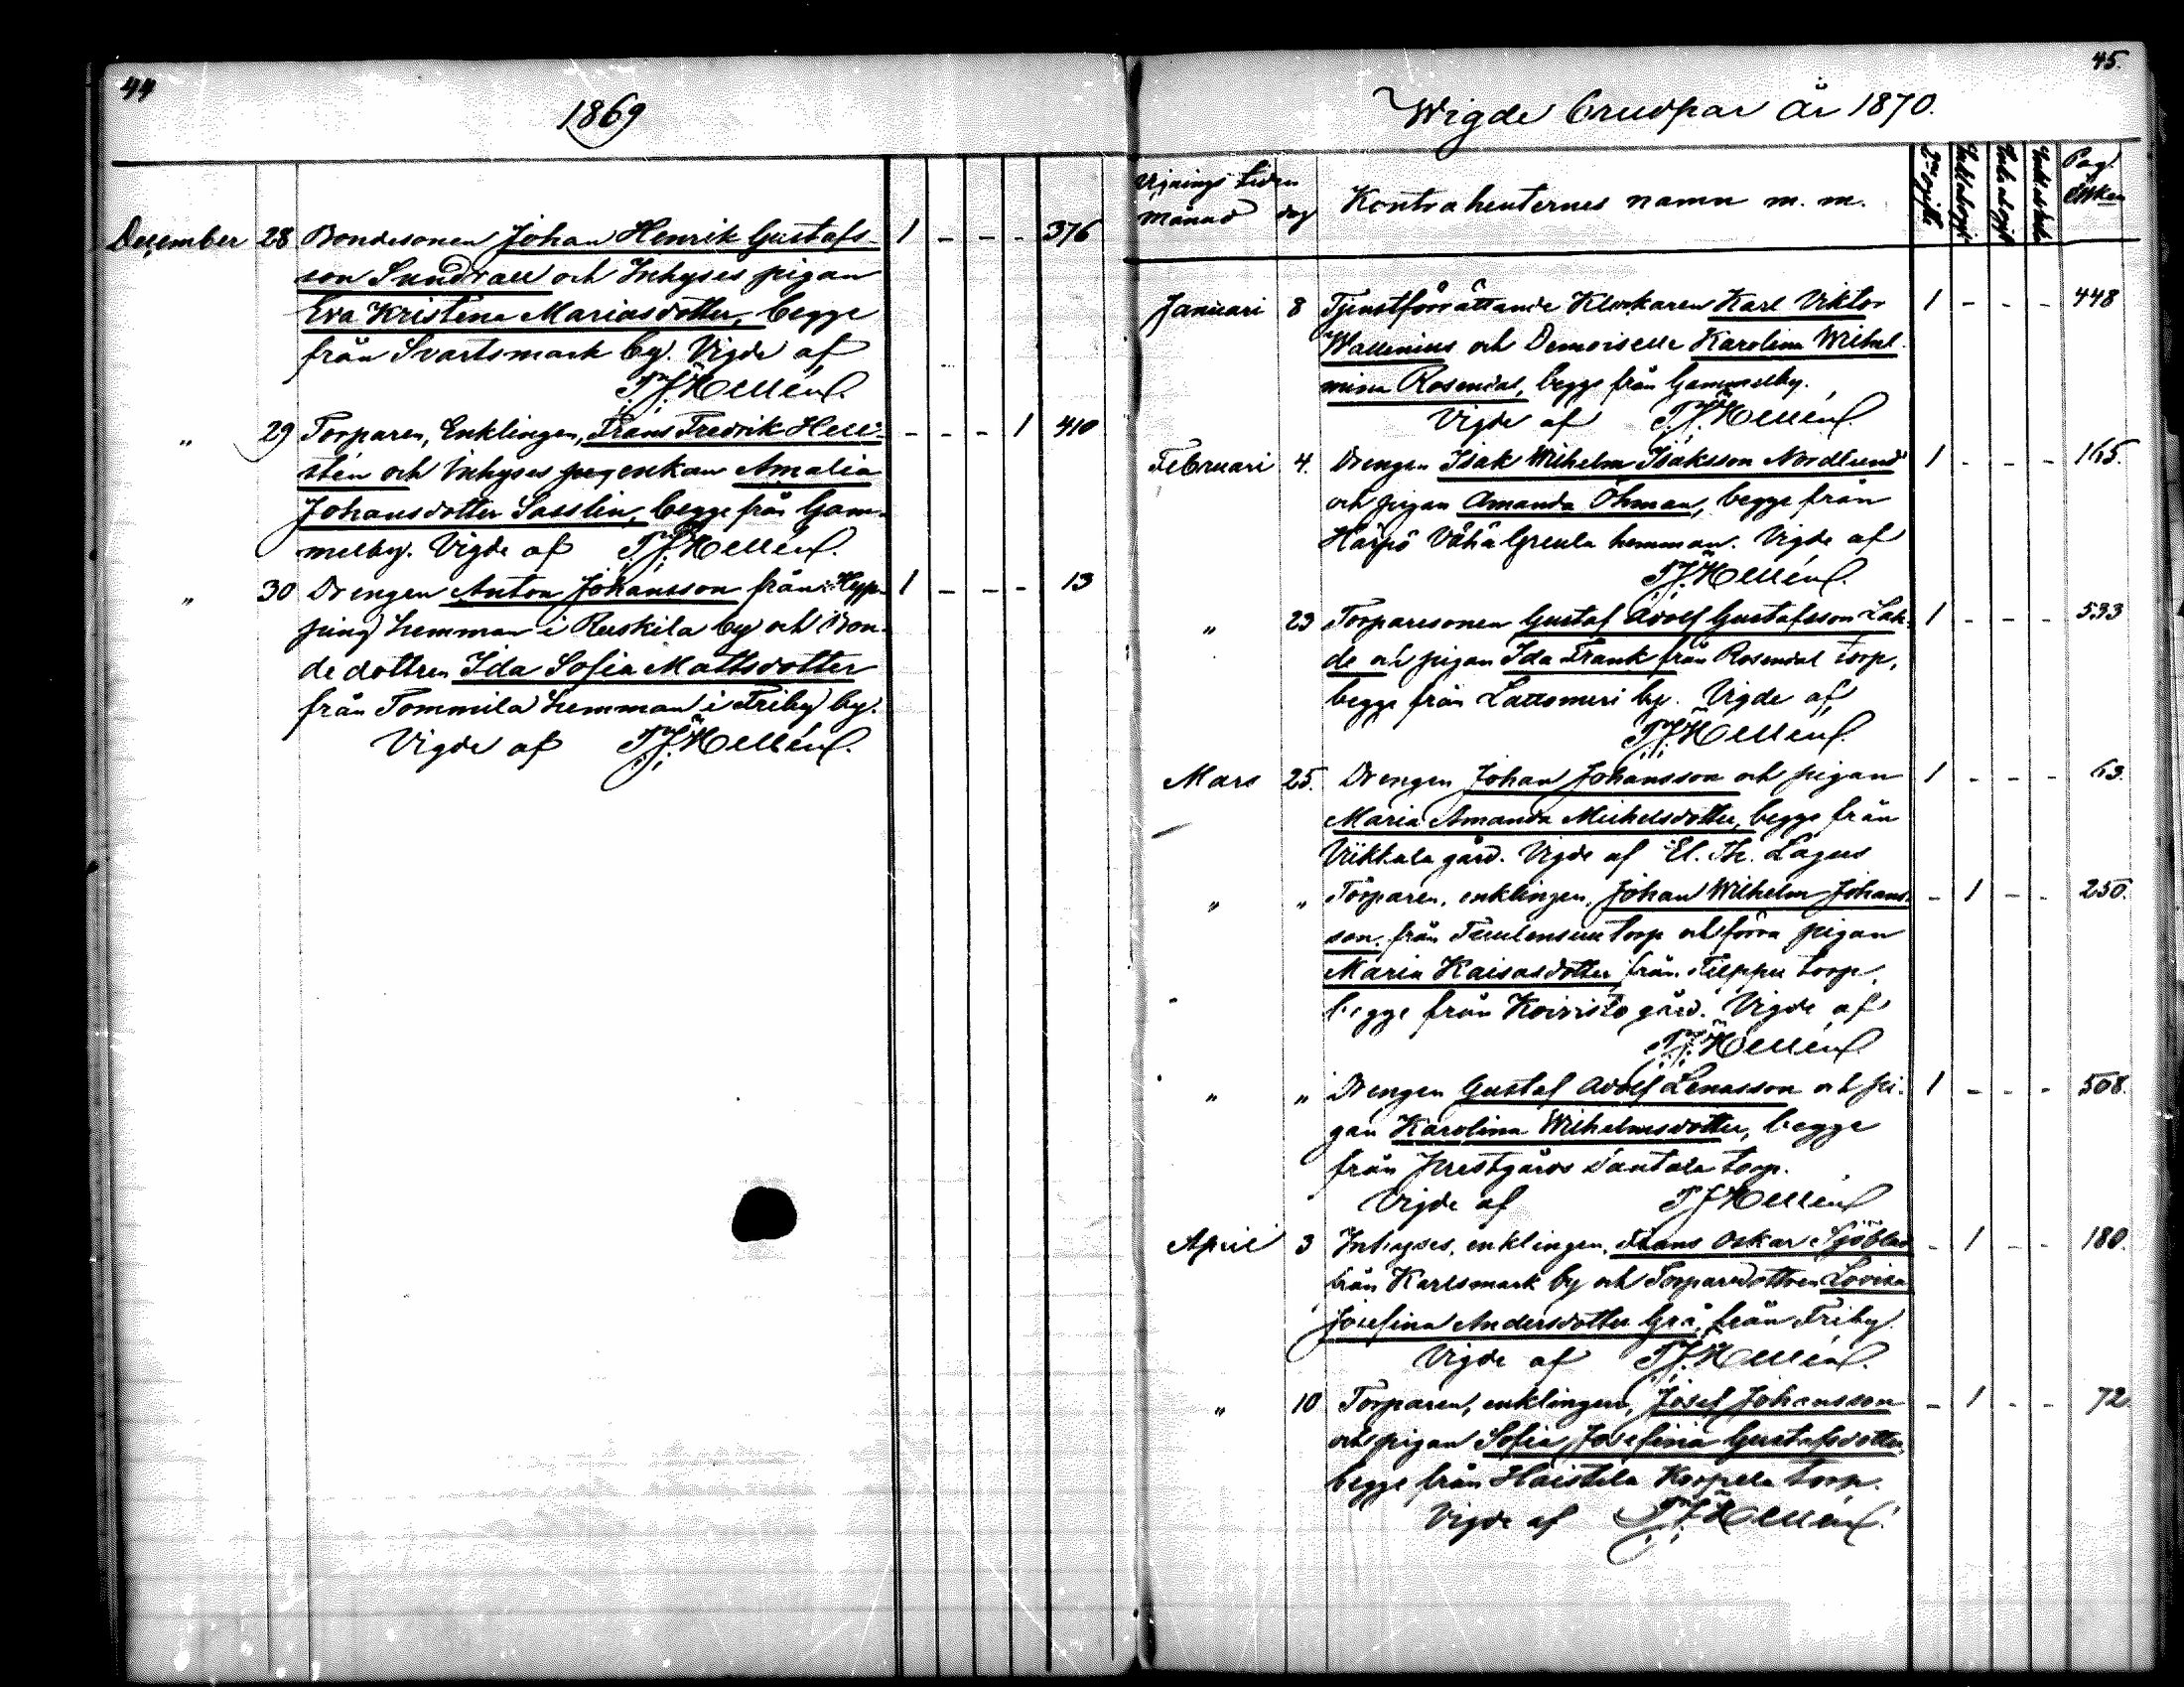 44
1869
December 28 Bondesonen Johan Henrik Gustafs- 1 - - - 376
son Sundvall och Inhyses pigan
Eva Kristina Mariasdotter, begge
från Svartsmark by. Vigde af
Hellén.
" 29 Torparen, Enklingen, Frans Fredrik Hell- - - - 1 410
stén och Inhyses enkan Amalia
Johansdotter Sasslin, begge från Gam-
melby. Vigde af Hellén.
" 30 Drengen Anton Johansson från Hyp- 1 - - - 13
ping hemman i Ruskila by och Bon-
de dottren Ida Sofia Mattsdotter
från Tommila hemman i Friby by.
Vigde af Hellén.
45.
Wigde brudpar år 1870.
Vignings tiden
månad dag Kontrahenternes namn m. m. Pag.
Januari 8 Tjenstförrättande Klockaren Karl Viktor 1 - - - 448
Wallenius och Demoiselle Karolina Wilhel-
mina Rosendal, begge från Gammelby.
Vigde af Hellén.
Februari 4. Drengen Isak Wilhelm Isaksson Nordlund 1 - - - 165.
och pigan Amanda Öhman, begge från
Harjo Vähä Greula hemman. Vigde af
Hellén.
" 23 Torparesonen Gustaf Adolf Gustafsson Lah- 1 - - - 533
de och pigan Ida Frank från Rosendal torp,
begge från Lattomeri by. Vigde af
Hellén.
Mars 25. Drengen Johan Johansson och pigan 1 - - - 63.
Maria Amanda Michelsdotter, begge från
Viikkala gård. Vigde af El. Th. Lagus
" " Torparen, enklingen, Johan Wilhelm Johans- - 1 - - 250.
son, från torp och förra pigan
Maria Kaisasdotter från Filppu torp,
begge från Koivisto gård. Vigde af
Hellén
" " Drengen Gustaf Adolf Lenasson och pi- 1 - - - 508.
gan Karolina Wilhelmsdotter, begge
från torp.
Vigde af Hellén
April 3 Inhyses, enklingen, Frans Oskar Sjöblad - 1 - - 180.
från Karlsmark by och Torparedottren Lovisa
Josefina Andersdotter Grå, från Friby.
Vigde af Hellén.
" 10 Torparen, enklingen, Josef Johansson - 1 - - 72.
och pigan Sofia Josefina Gustafsdotter,
begge från Haistila Korpela torp.
Vigde af Hellén.